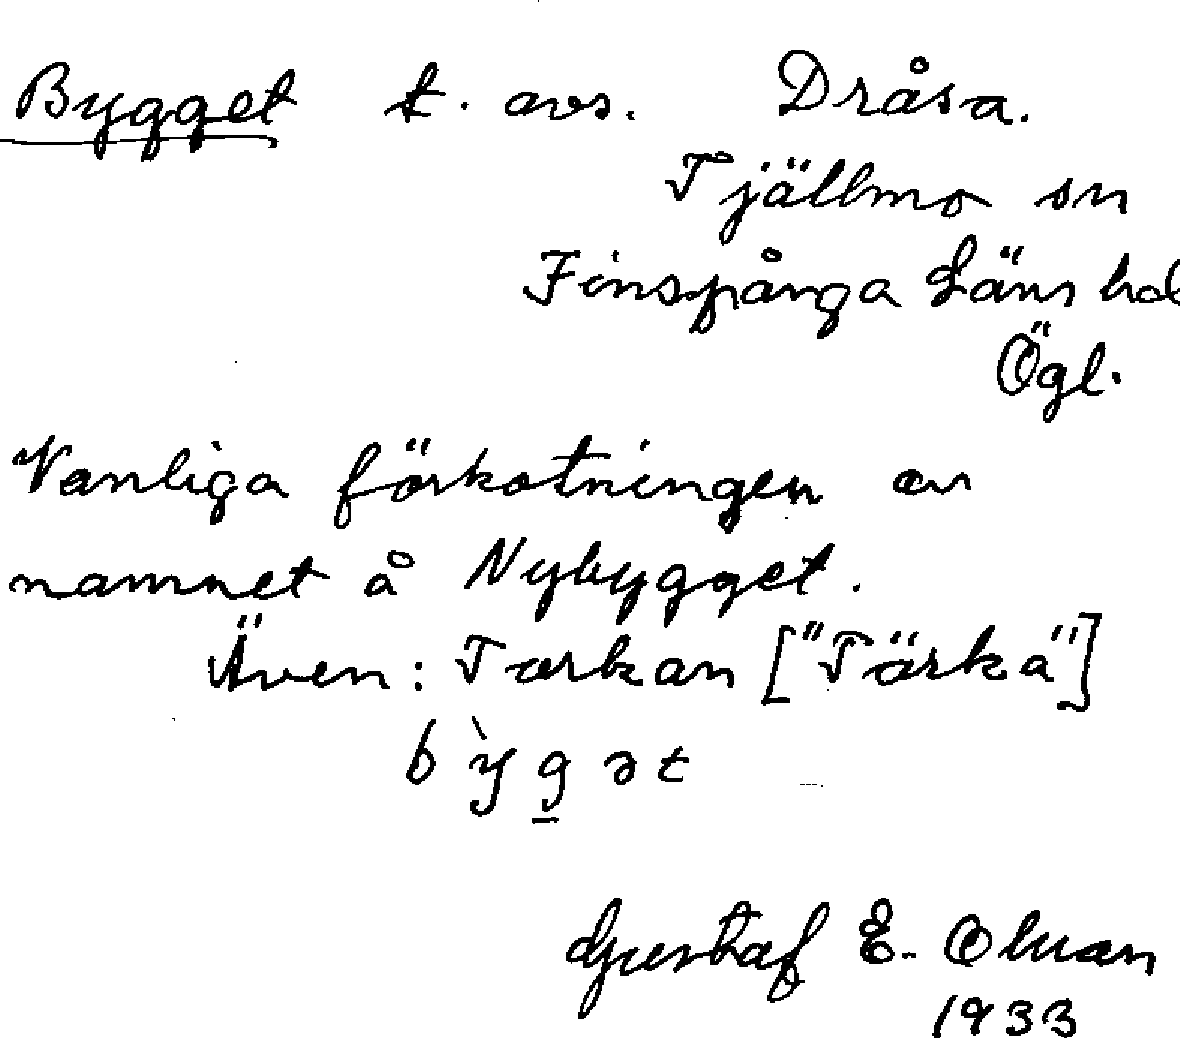 Bygget t. avs. Dråsa.
Tjällmo sn
Finspånga Läns hd
Ögl.
Vanliga förkotningen av
namnet å Nybygget.
Även: Torkan ["Tärka"]
b ỳ g ə t
Gustaf E. Olson
1933